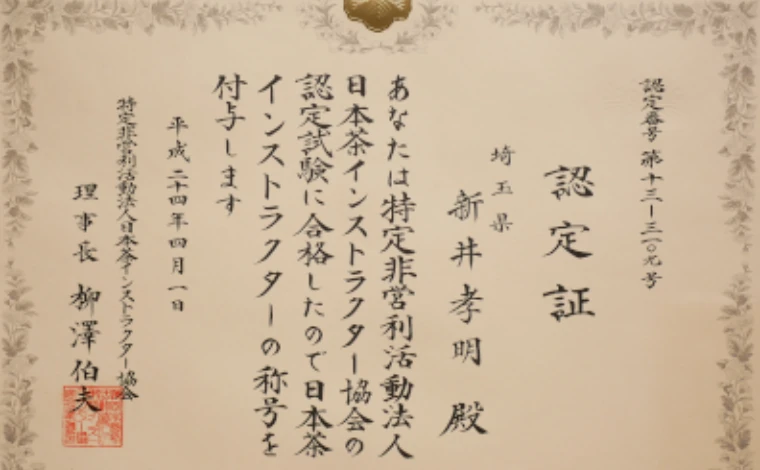 認定番号 第十三-三一〇九号
認定証
埼玉県
新井孝明 殿
あなたは特定非営利活動法人
日本茶インストラクター協会の
認定試験に合格したので日本茶
インストラクターの称号を
付与します
平成二十四年四月一日
特定非営利活動法人日本茶インストラクター協会
理事長 柳澤伯夫